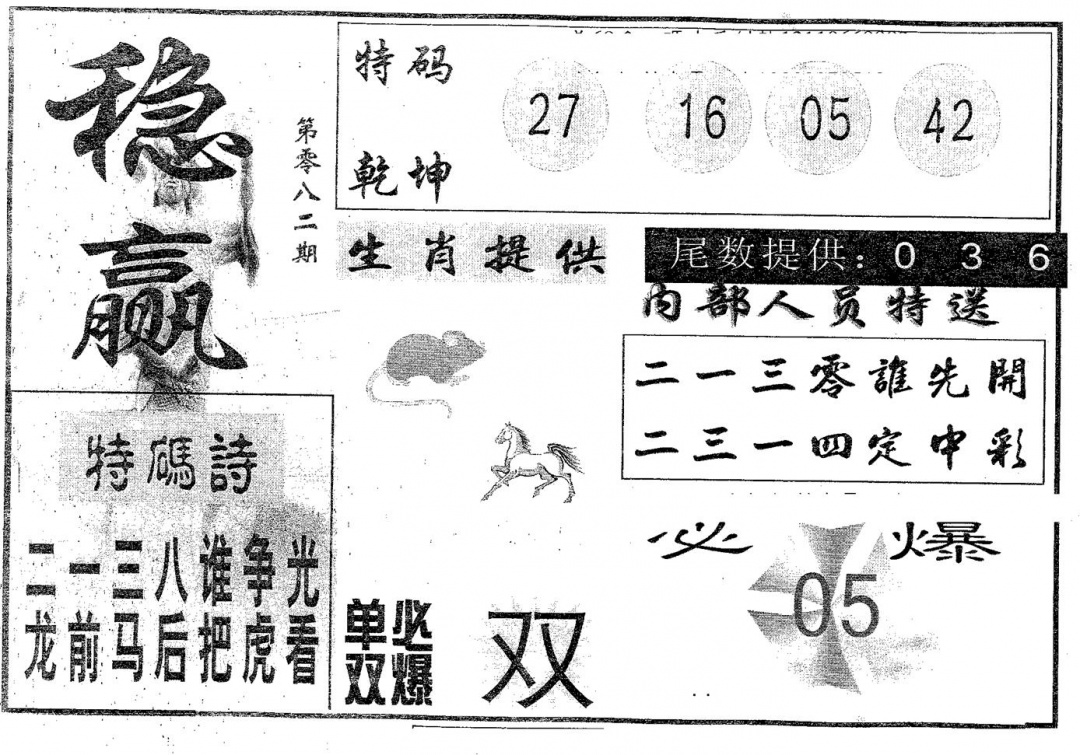 稳赢
第零八二期
特码
乾坤
27 16 05 42
生肖提供
尾数提供：0 3 6
内部人员特送
二一三零誰先開
二三一四定中彩
特碼詩
二一三八谁争光
龙前马后把虎看
单双必爆
双
必爆
05